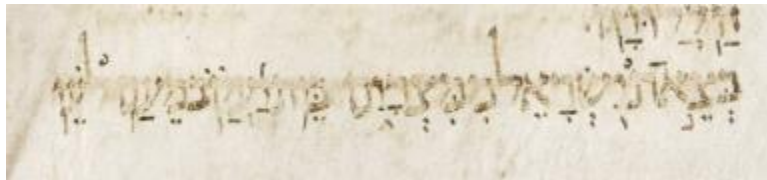 הַלְלוּיָהּ
בְּצֵאת יִשְׂרָאֵל מִמִּצְרָיִם בֵּית יַעֲקֹב מֵעַם לֹעֵז